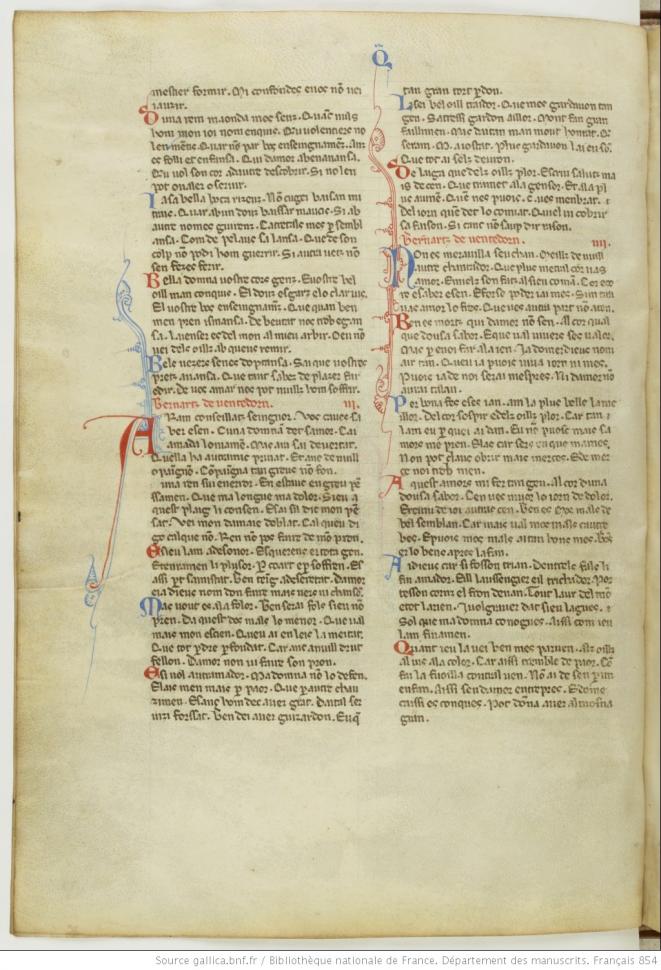 mestier formir. Mi confondes euos nō uei
iauzir.
Duna rem maonda mos senz. Quāc nuls
hom mon ioi nom enquis. Qu uolentiers no
len mētis. Quar nō par bos enseingnamēz. Anz
es folli et enfansa. Qui damor abenanansa.
Qu uol son cor adautre descobrir. Si no len
pot o ualer o seruir.
La sa bella boca rizenz. Nō cugei baisan mi
trais. Quar ab un dous baissar maucis. Si ab
autre nomes guirenz. Catretals mes ꝑ sembl
ansa. Com de pelaus la lansa. Que de son
colp nō podi hom guerrir. Si autra uetz nō
sen fezes ferir.
Bella domna uostre cors genz. Euostre bel
oill man conquis. El douz esgarz elo clar uis.
El uostre bos enseingnamēz. Que quan ben
men pren esmansa. De beutat nos trob egan
sa. La
 genser es del mon al mieu arbir. O eu nō
uei dels oillz ab queus remir.
Bels uezers senes doptansa. Sai que uostre
pretz
 enansa. Que tant sabez de plazers far
edir. De uos amar nos pot nuillz hom soffrir.
Bernartz de uentedorn. III.
Aram conseillatz seingnor. Vos cauetz sa
ber e sen. Cuna domnam det samor. Cai
amada loniamē. Mas ara sai de uertat.
Quella ha autramic priuat. Et anc de nuill
cōpaignō. Cōpaigna tan greus nō fon.
Duna ren sui en error. En estauc en greu pē
ssamen. Que ma longue ma dolor. Si eu a
quest plag li consen. E saisil dic mon pē
sat. Vei mon damnaie doblat. Cal queu di
go calque nō. Ren nō pos faire de mō pron.
Esieu lam adesonor. Esquerns ertota gen.
Tenran
 men li plusor. Per
 coart ꝑ soffren. Es
aissi pert samistat. Ben teing
 adeseretat. Damor
 cia dieus nom donc
 faire mais uers ni chansō.
Mas uout es ala folor. Ben serai fols sieu nō
pren. Da quest dos mals lo menor. Que ual
mais mon escien. Queu ai en leis la meitat.
Que tot ꝑdre ꝑ fondat. Car anc a nuill drut
fellon. Damor non ui faire son pron.
Esi uol autramador. Ma domna nō lo defen.
E lais men mais ꝑ paor. Que ꝑ autre chau
zimen. E sanc hom dec auer grat. Dautal ser
uizi forssat. Ben dei auer guizardon. Euq̄
tan gran tort ꝑdon.
Li sei bel oill traidor. Que mes gardauon tan
gen. Satressi gardon aillor. Mout fan gran
faillimen. Mas daitan man mout honrat. Q̄
seran. M. aiostat. Plus gardauon lai eu sō.
Que tot aicels deuiron.
De laiga que dels oills plor. Escriu salutz ma
is de cen. Que tramet ala gensor. Et ala pl
us auinē. Que mes puois. e ues menbrat.
Del iorn quē det lo comiat. Quel ui cobrir
sa faison. Si canc nō saup dir razon.
Bernartz de uentedorn. IIII.
Non es merauilla seu chan. Meillz de nuill
autre chantador. Que plus metal cor uas
amor. E mielz son faitz al sieu comā. Cor e cor
re e saber e sen. E forse poder iai mes. Sim tira
uas amor lo fres. Que ues autra part nō aten.
Ben es mortz qui damor nō sen. Al cor qual
que dousa sabor. E que ual uiuere ses ualor.
Mas ꝑ enoi far ala ien. Ja domerdieus nom
air tan. Queu ia puois uiua iorn ni mes.
Puois ia de noi serai mespres. Ni damor nō
aurai talan.
Per bona fes e ses ian. am la plus bella la me
illor. Del cor sospir e dels oillz plor. Car tan l
lam eu ꝑ quei ai dan. Eu nō puosc mais sa
mors mē pren. E las car sers en que ma mes.
Non pot claus obrir mais merces. E de mer
ce noi trob nien.
Aquest amors mi fer tan gen. Al cor duna
dousa sabor. Cen ues muor lo iorn de dolor.
E reuiu de ioi autras cen. Ben es mos mals de
bel semblan. Car mais ual mos mals cautre
bes. E puois mos mals aitan bons mes. Bōs
er lo bens apres la fan.
Ai dieus car si fosson trian. D entrels fals li
fin amador. E ill laussengier eil trichador. Por
tesson corns el fron denan. Tout laur del mō
e tot largen. I uolgrauer dat sieu lagues.
Sol que ma domna conogues. Aissi com ieu
lam finamen.
Quant ieu la uei ben mes paruen. Als oills
al uis ala color. Car aissi tremble de paor. Cō
fai la fuoilla contral uen. Nō ai de sen ꝑ un
enfan. Aissi sen damor entrepres. E dome
caissi es conques. Pot dōna auer almosna
gran.
Source gallica.bnf.fr / Bibliothèque nationale de France. Département des manuscrits. Français 854